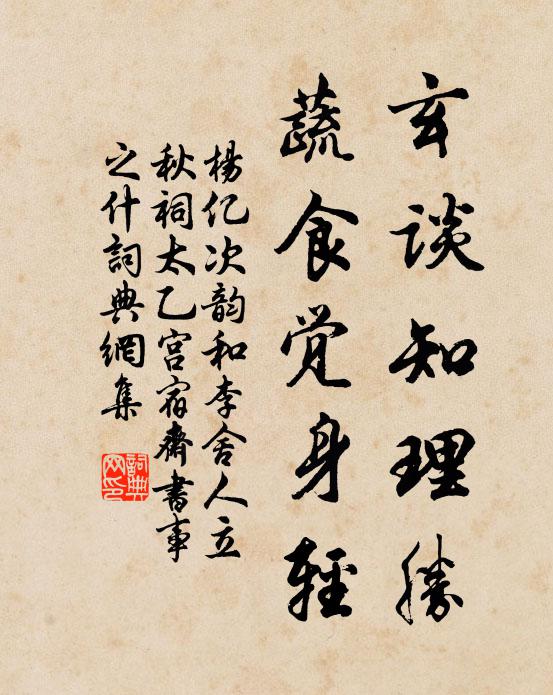 玄谈知理勝
蔬食觉身輕
楊亿次韵和李舍人立
秋祠太乙宫宿齋書事
之什詞典網集
詞典网印